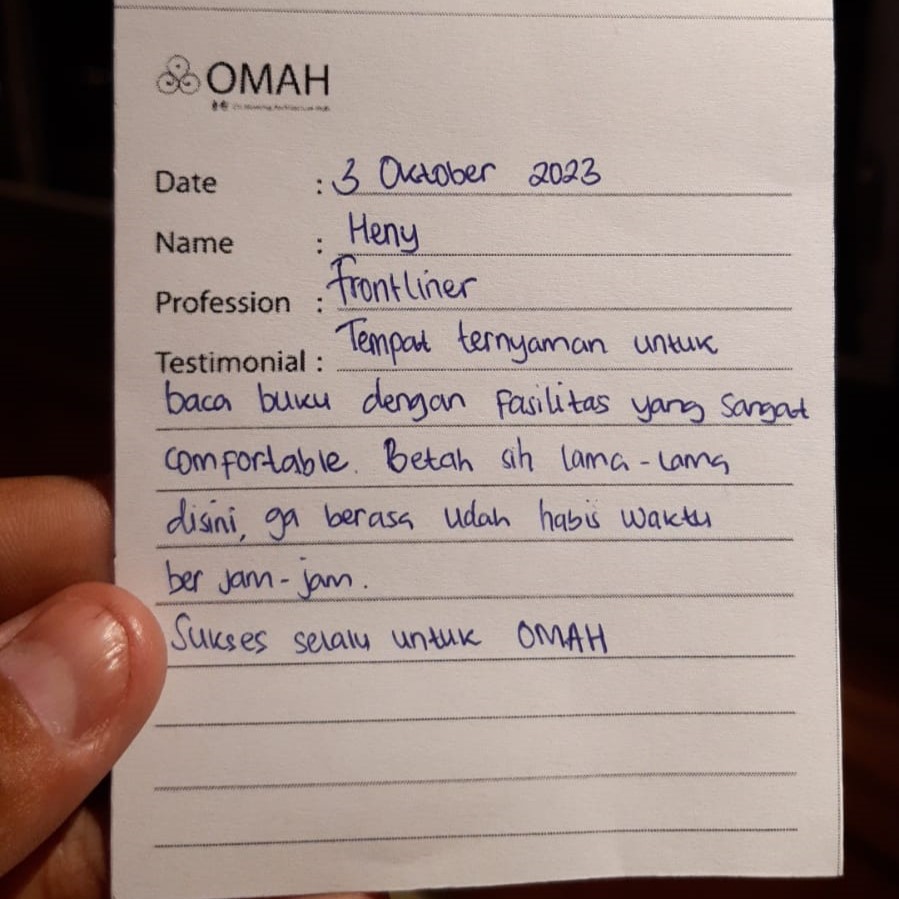 OMAH
Date : 3 Oktober 2023
Name : Heny
Profession : frontliner
Testimonial : Tempat ternyaman untuk
baca buku dengan fasilitas yang sangat
comfortable. Betah sih lama-lama
disini, ga berasa udah habis waktu
ber jam-jam.
Sukses selalu untuk OMAH